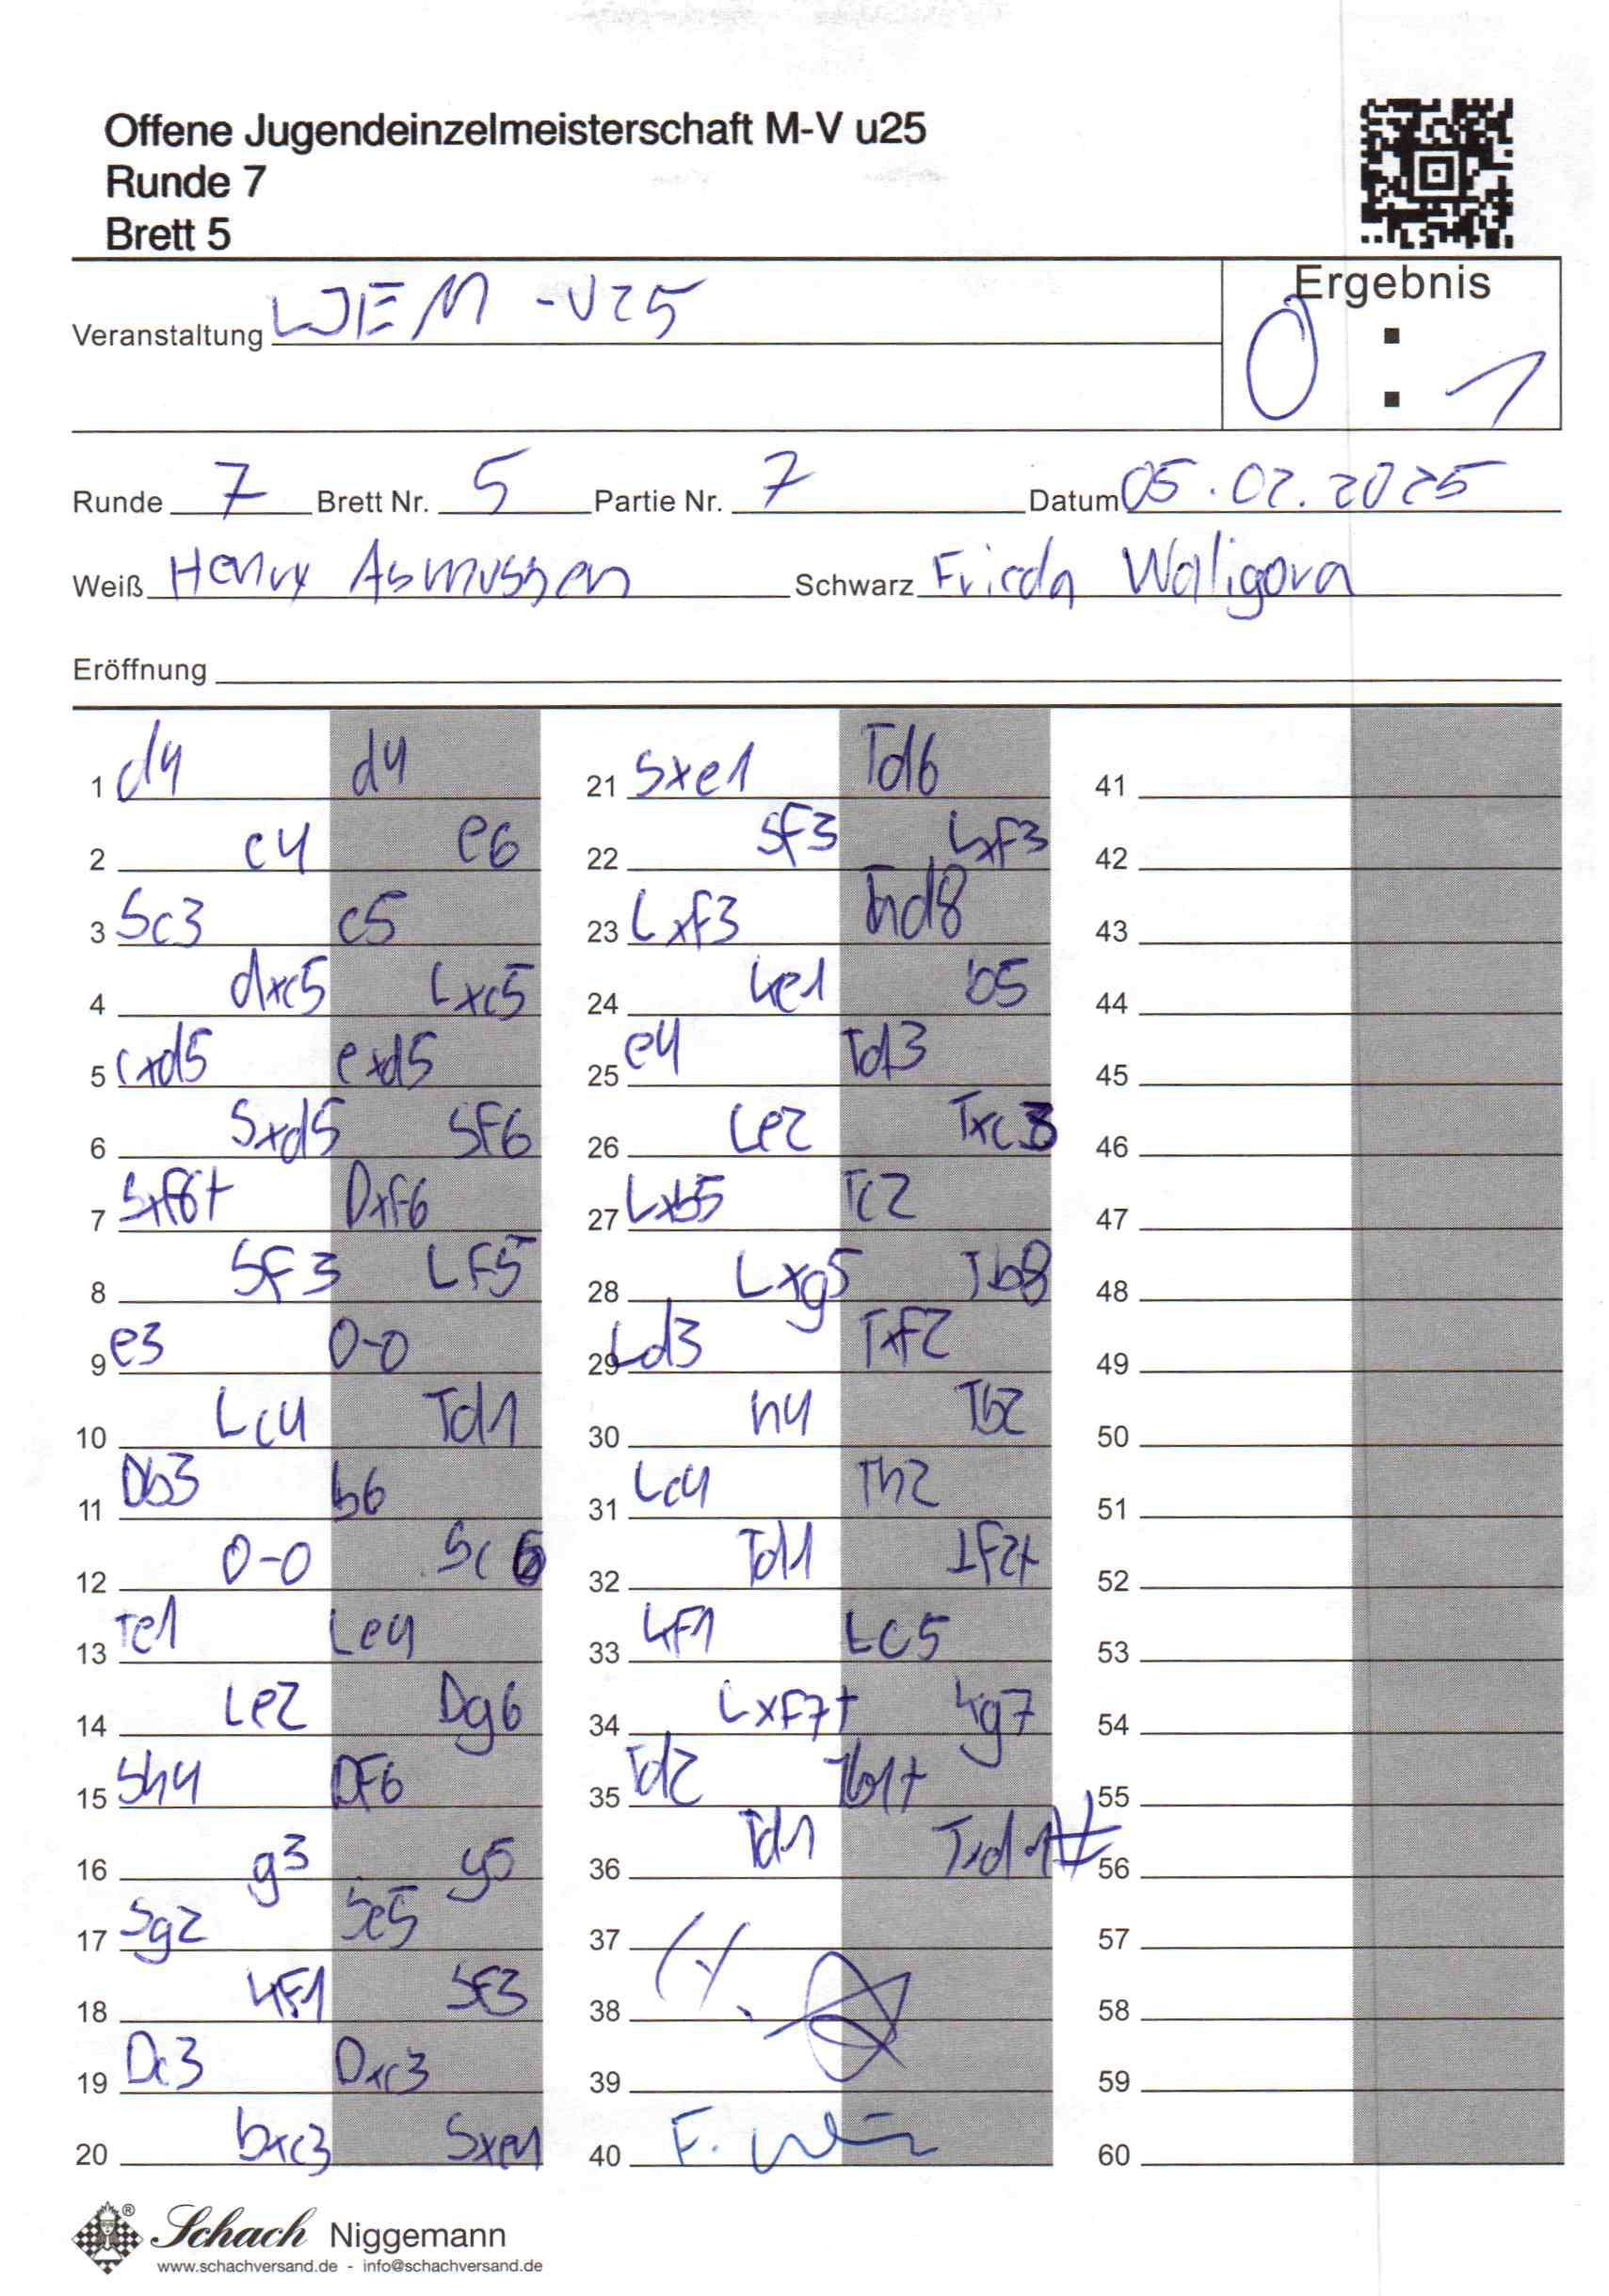 Offene Jugendeinzelmeisterschaft M-V u25
Runde 7
Brett 5
Ergebnis
Veranstaltung LJEM -U25
0 : 1
Runde 7 Brett Nr. 5 Partie Nr. 7 Datum 05.02.2025
Weiß Henry Asmussen Schwarz Frieda Waligora
Eröffnung
1 d4 d4 21 Sxe1 Td6 41
2 c4 e6 22 Sf3 Lxf3 42
3 Sc3 c5 23 Lxf3 Tad8 43
4 dxc5 Lxc5 24 Ke1 b5 44
5 cxd5 exd5 25 e4 Td3 45
6 Sxd5 Sf6 26 Le2 Txc3 46
7 Sxf6+ Dxf6 27 Lxb5 Tc2 47
8 Sf3 Lf5 28 Lxg5 Tb8 48
9 e3 0-0 29 Ld3 Txf2 49
10 Lc4 Td1 30 h4 Tb2 50
11 Db3 b6 31 Lc4 Th2 51
12 0-0 Sc6 32 Td1 Tf2+ 52
13 Te1 Le4 33 Kf1 Lc5 53
14 Le2 Dg6 34 Lxf7+ Kg7 54
15 Sh4 Df6 35 Td2 Tb1+ 55
16 g3 g5 36 Td1 Txd1# 56
17 Sg2 Se5 37 57
18 Kf1 Sf3 38 58
19 Dc3 Dxc3 39 59
20 bxc3 Sxe1 40 60
Schach Niggemann
www.schachversand.de - info@schachversand.de